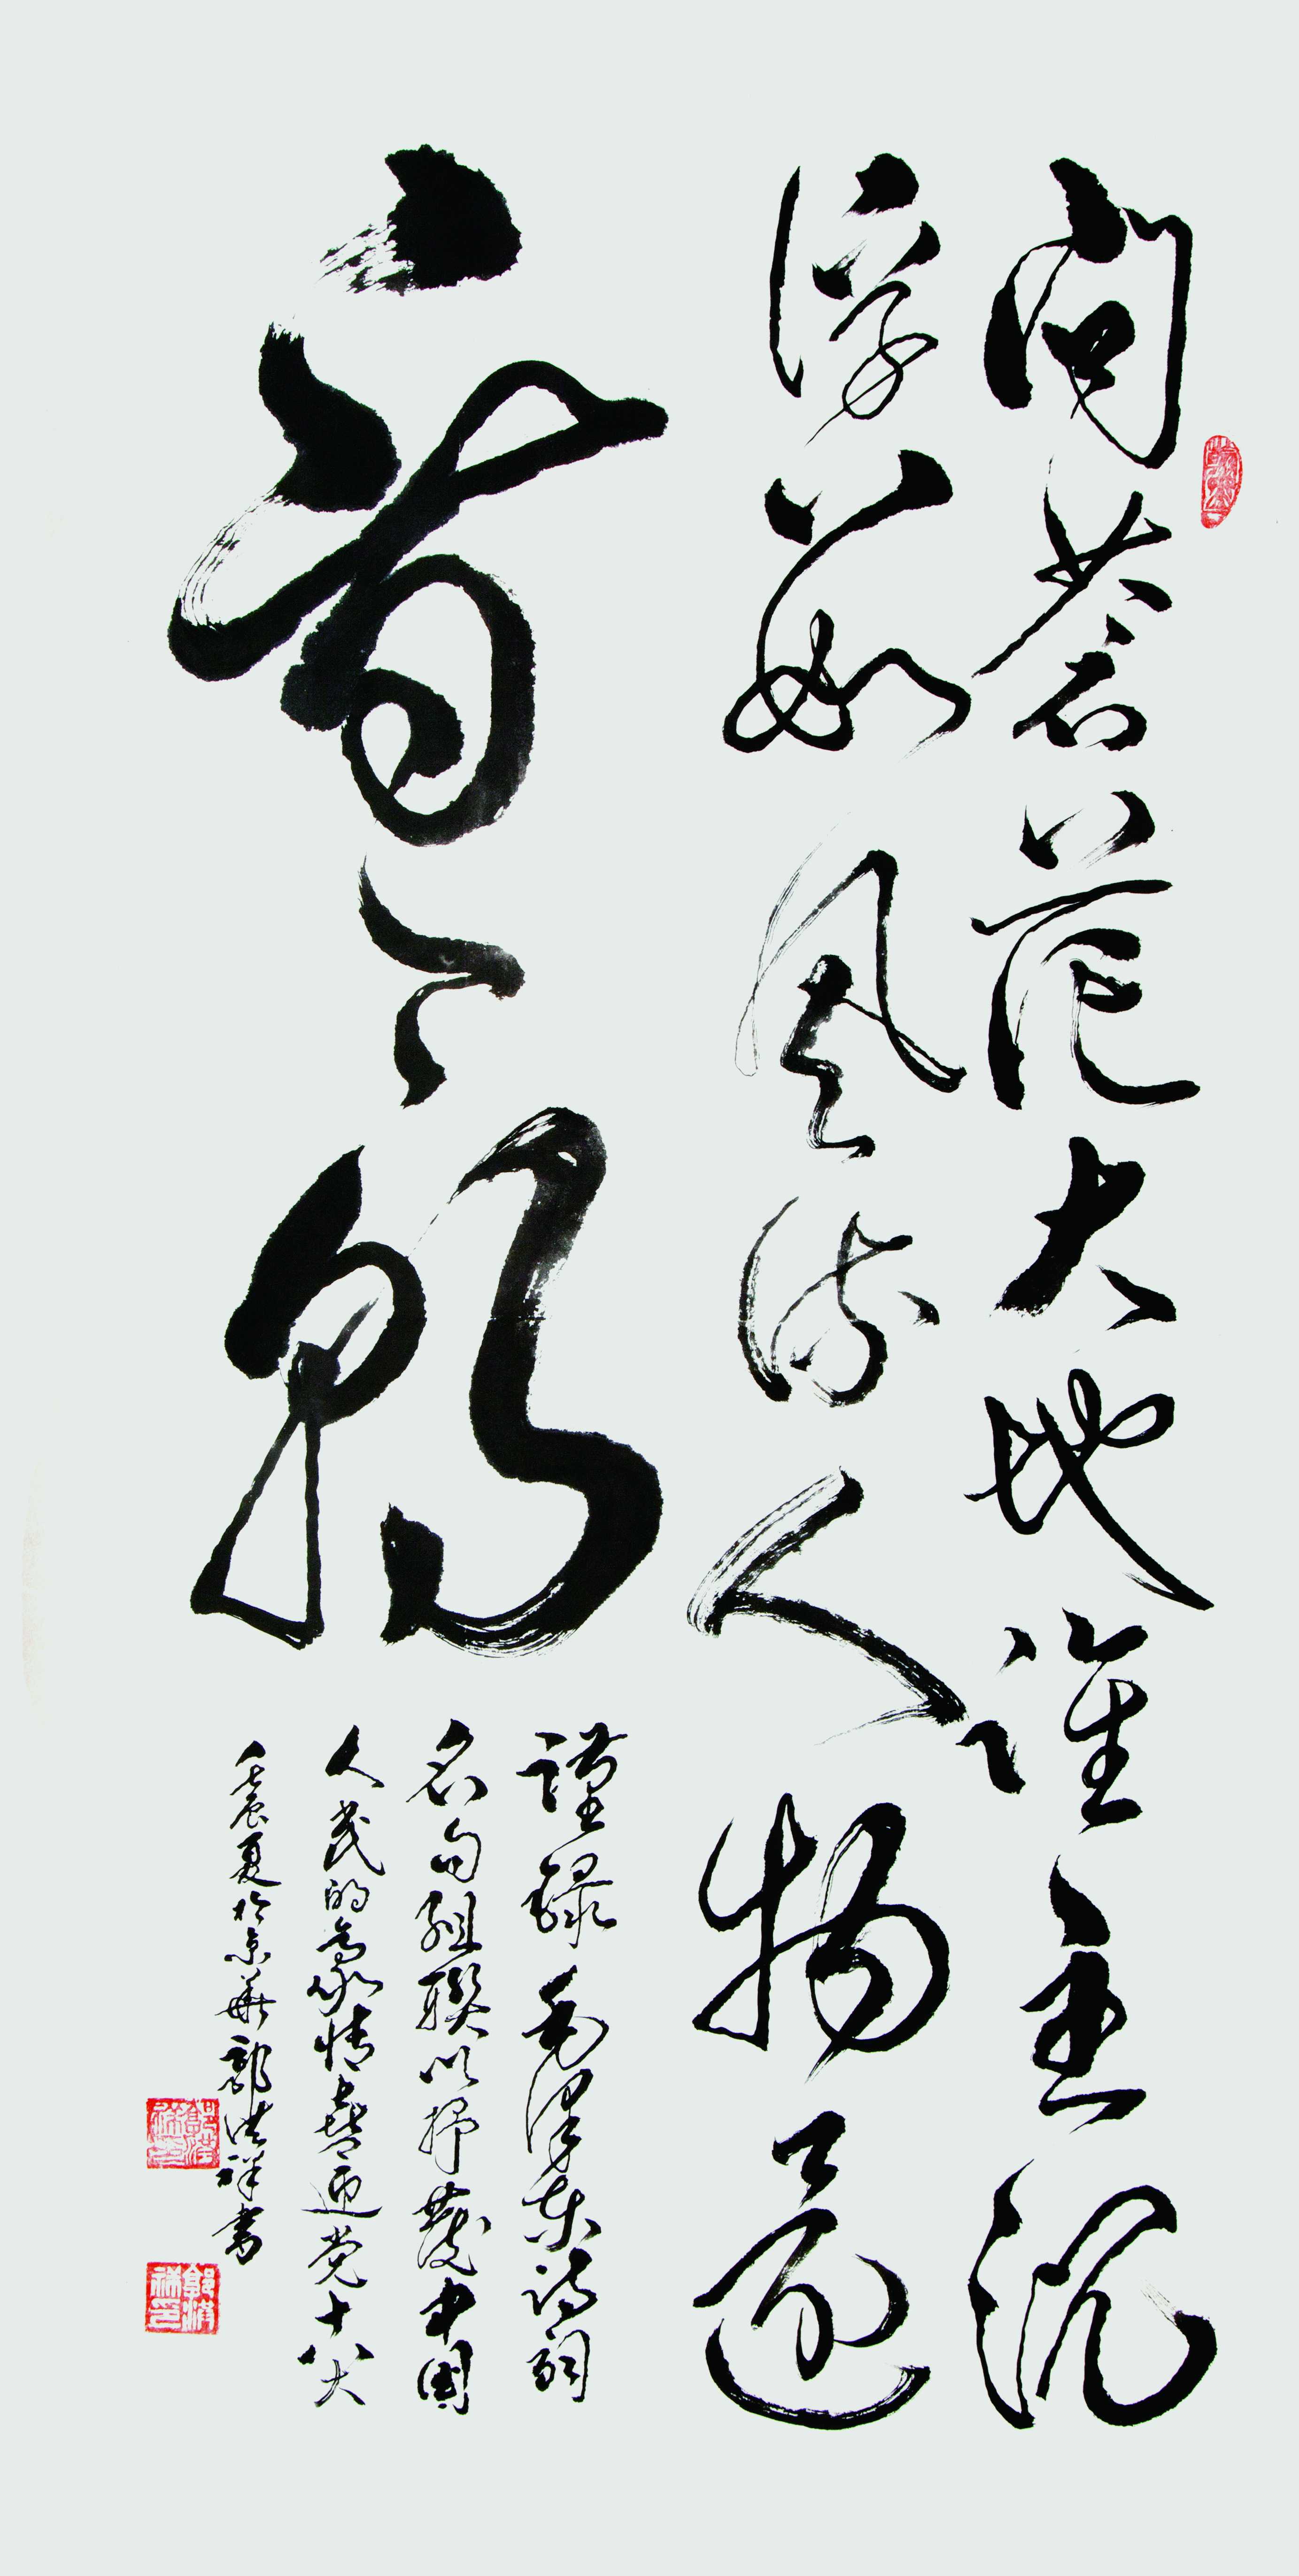 問蒼茫大地誰主沉
浮數風流人物還
看今朝
謹錄毛澤東詩詞
名句組聯以抒發中國
人民的豪情喜迎党十八大
壬辰夏於京華郭洪祥书